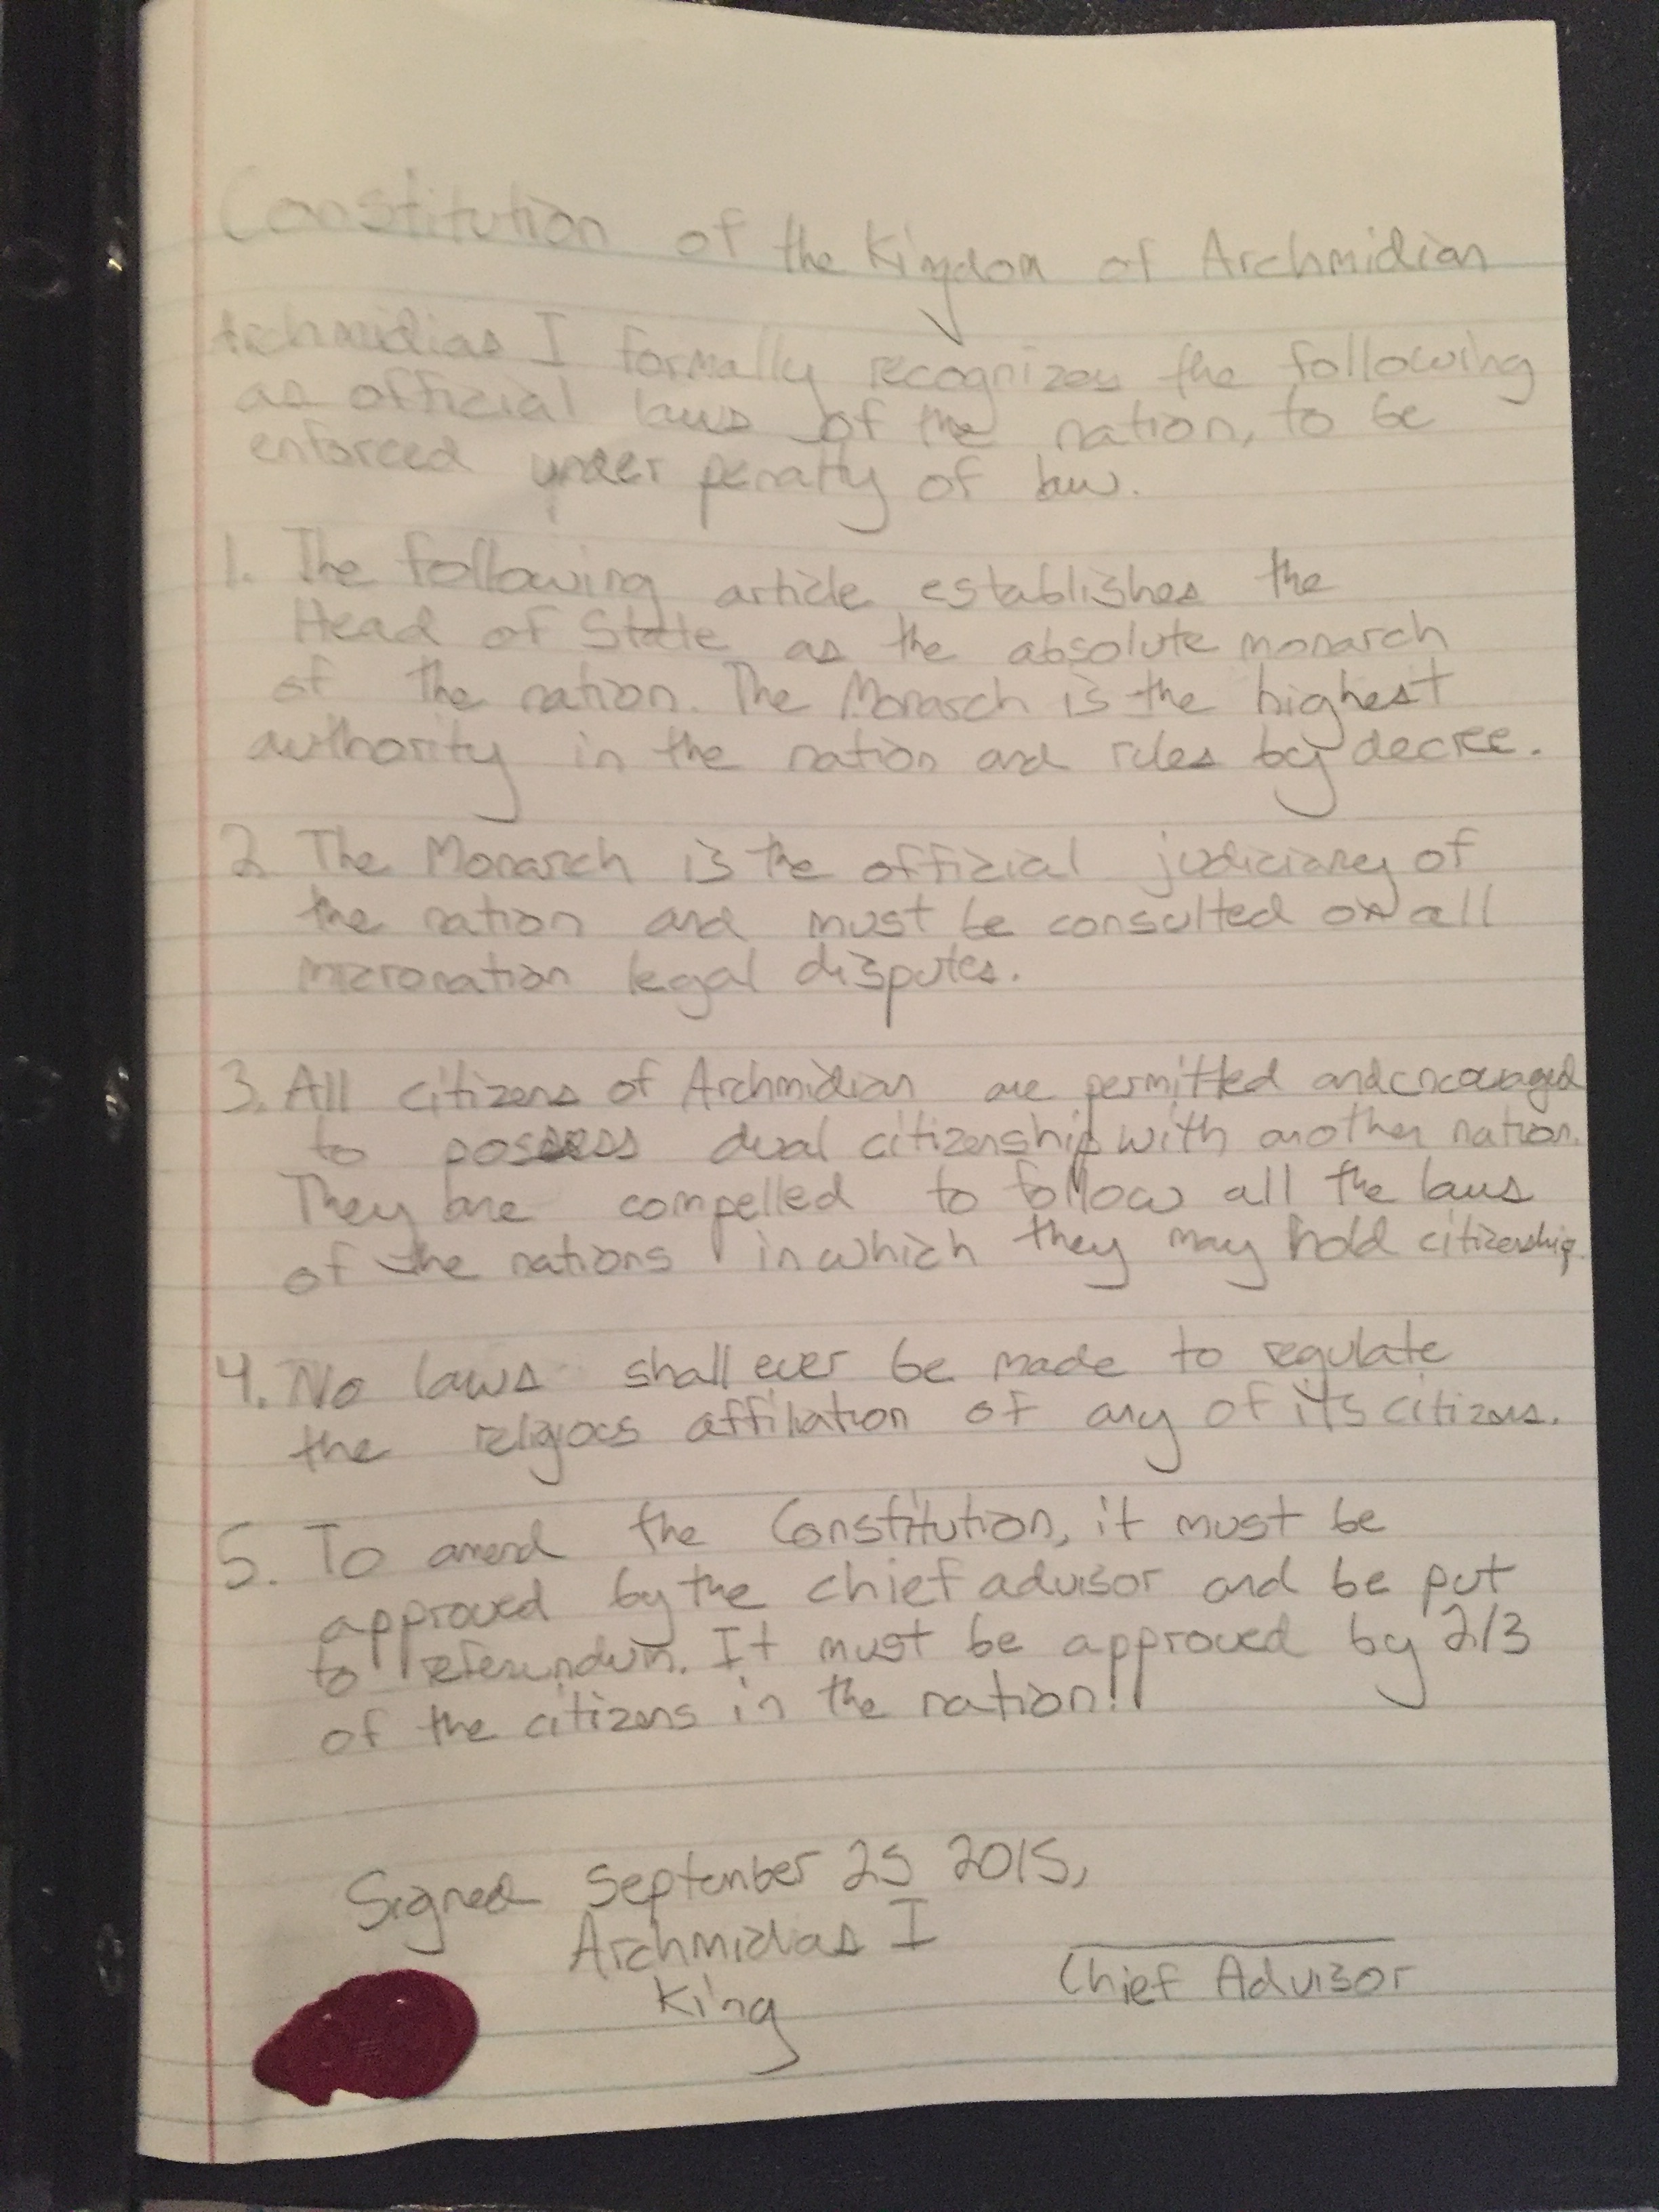 Constitution of the Kingdom of Archmidian
Archmidias I formally recognizes the following
as official laws of the nation, to be
enforced under penalty of law.
1. The following article establishes the
Head of State as the absolute monarch
of the nation. The Monarch is the highest
authority in the nation and rules by decree.
2 The Monarch is the official judiciary of
the nation and must be consulted on all
micronation legal disputes.
3. All citizens of Archmidian are permitted and encouraged
to possess dual citizenship with another nation.
They are compelled to follow all the laws
of the nations in which they may hold citizenship.
4. No laws shall ever be made to regulate
the religous affiliation of any of its citizens.
5. To amend the Constitution, it must be
approved by the chief advisor and be put
to referendum. It must be approved by 2/3
of the citizens in the nation.
Signed September 25 2015,
Archmidias I
King
Chief Advisor